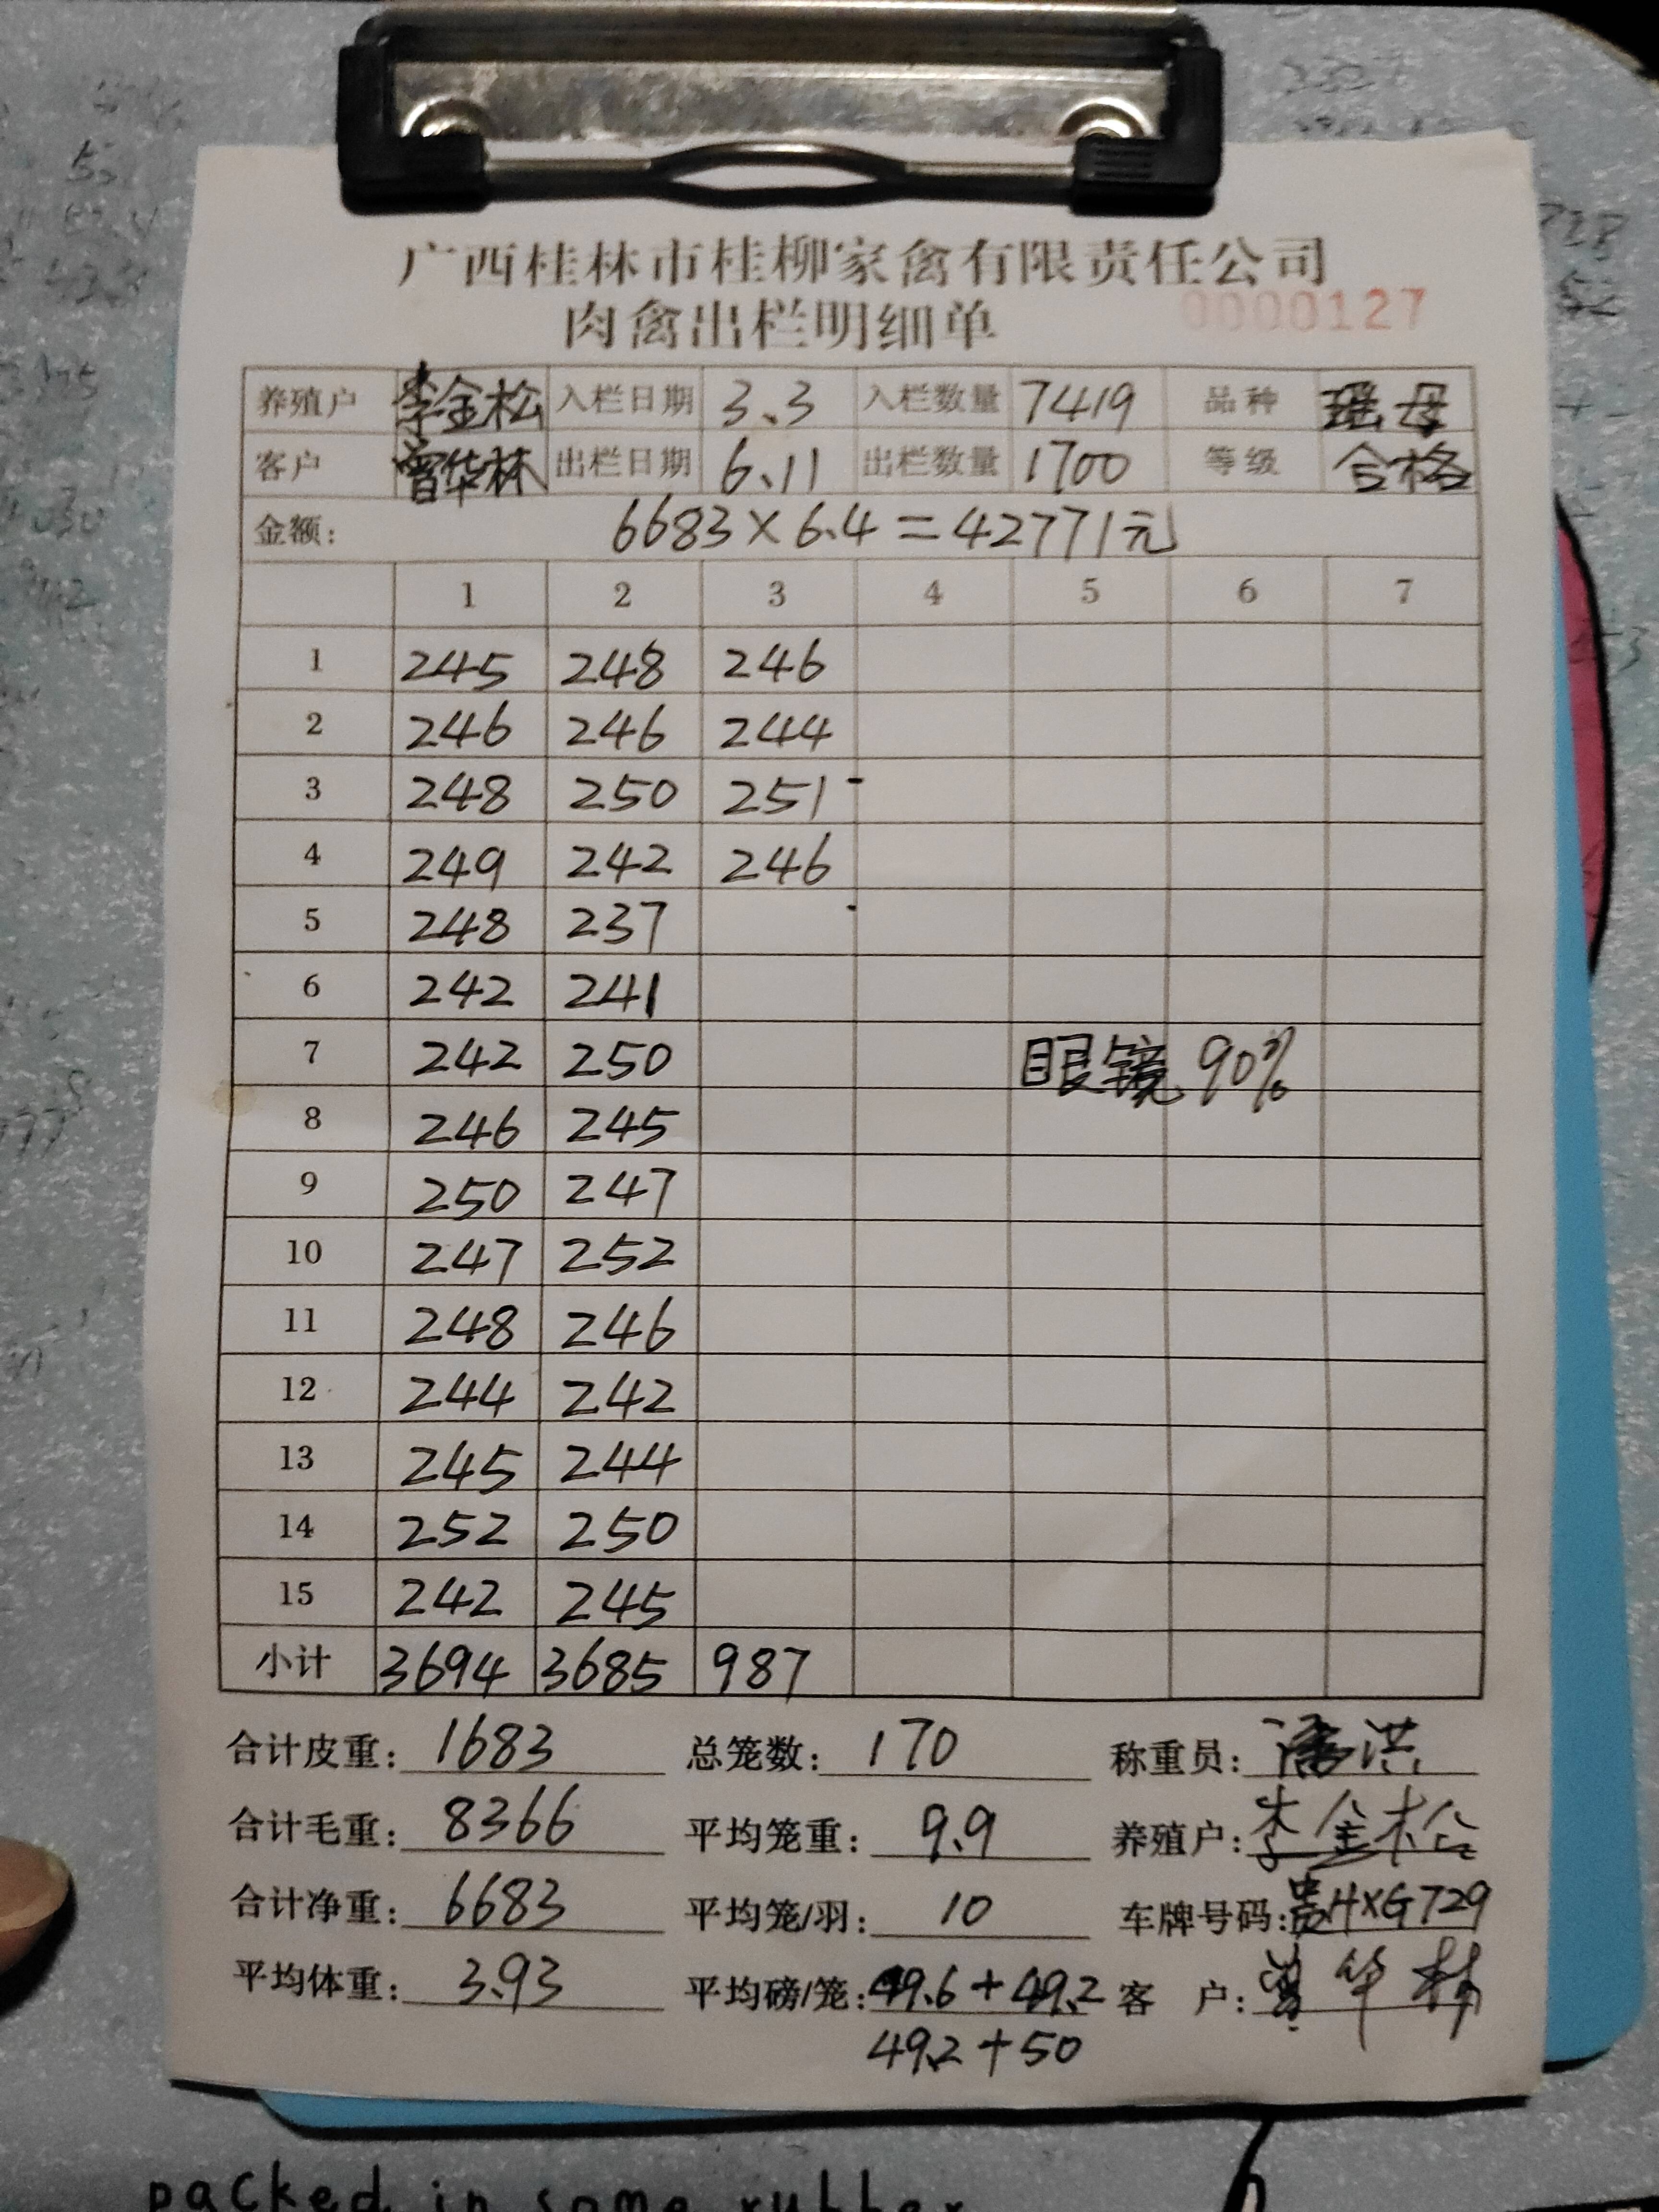 广西桂林市桂柳家禽有限责任公司
肉禽出栏明细单 0000127
养殖户 李金松 入栏日期 3.3 入栏数量 7419 品种 瑶母
客户 曾华林 出栏日期 6.11 出栏数量 1700 等级 合格
金额: 6683×6.4=42771元
1 2 3 4 5 6 7
1 245 248 246
2 246 246 244
3 248 250 251
4 249 242 246
5 248 237
6 242 241
7 242 250 眼镜 90%
8 246 245
9 250 247
10 247 252
11 248 246
12 244 242
13 245 244
14 252 250
15 242 245
小计 3694 3685 987
合计皮重: 1683 总笼数: 170 称重员: 潘洪
合计毛重: 8366 平均笼重: 9.9 养殖户: 李金松
合计净重: 6683 平均笼/羽: 10 车牌号码: 贵HXG729
平均体重: 3.93 平均磅/笼: 49.6+49.2 客 户: 曾华林
49.2+50
packed in some rubber